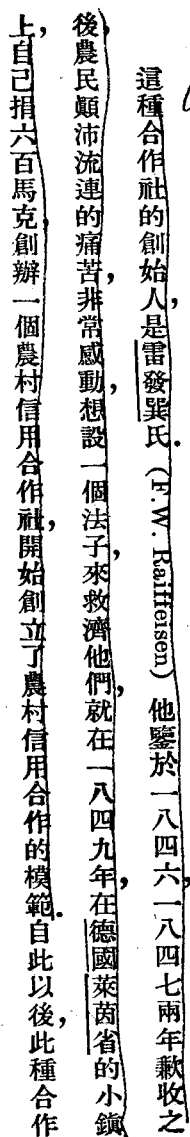 這種合作社的創始人是雷發巽氏.(F.W. Raiffeisen)他鑒於一八四六,一八四七兩年歉收之
後,農民顚沛流連的痛苦,非常感動,想設一個法子,來救濟他們,就在一八四九年,在德國萊茵省的小鎮
上,自己捐六百馬克,創辦一個農村信用合作社,開始創立了農村信用合作的模範.自此以後,此種合作